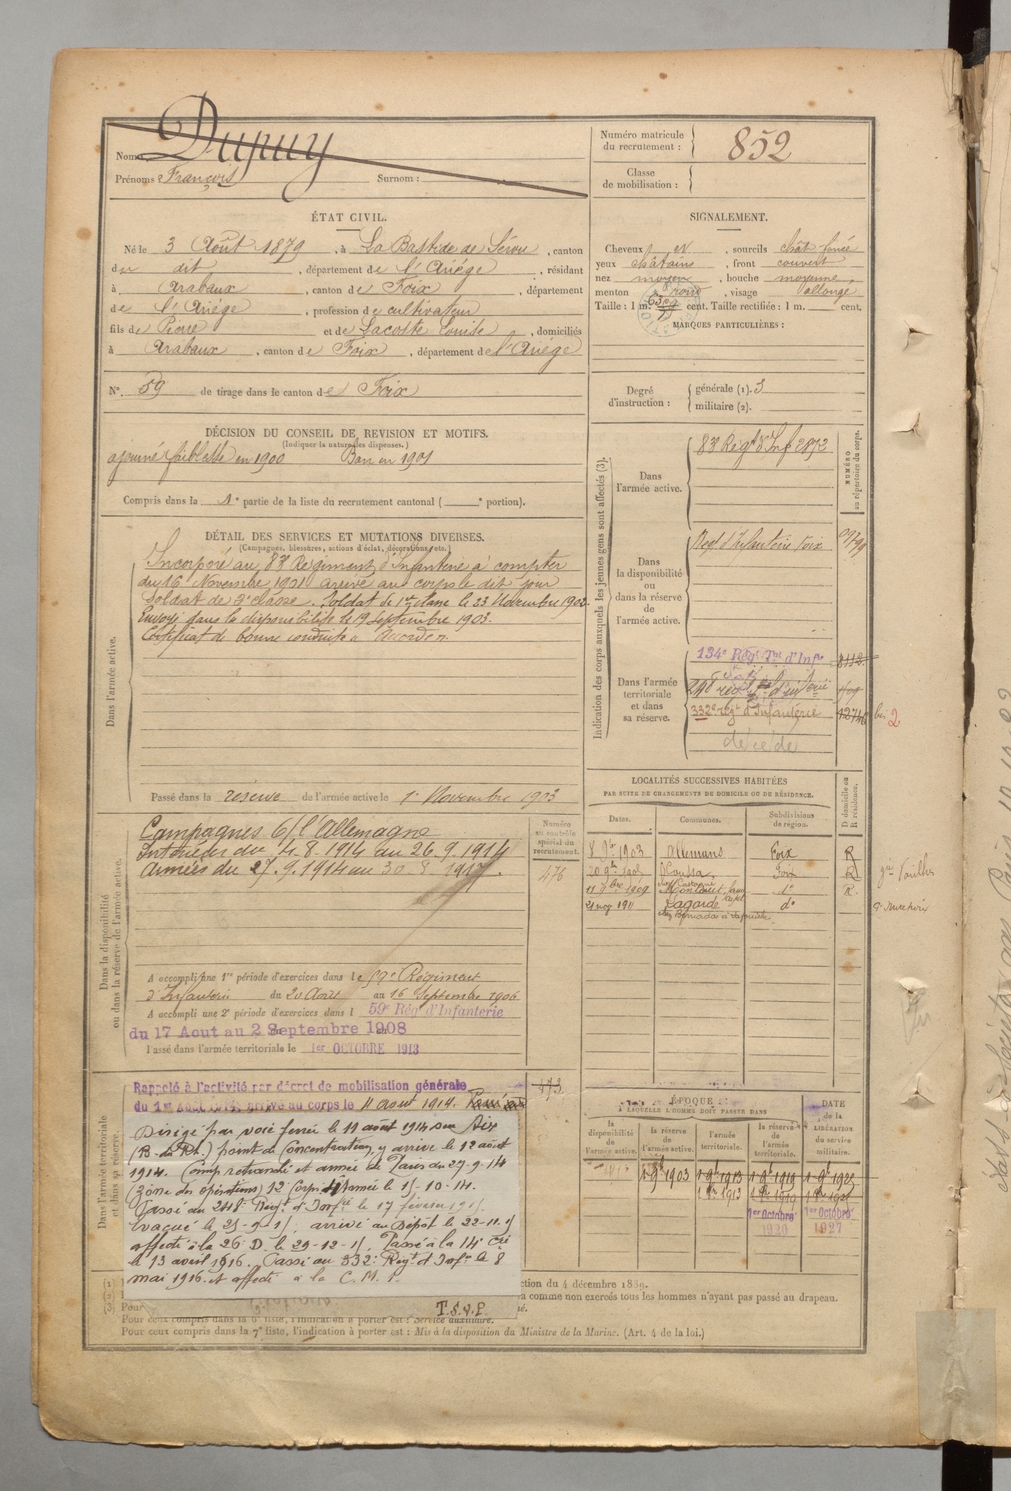 Nom : Dupuy
Prénoms : François Surnom :
Numéro matricule du recrutement : 852
Classe de mobilisation :
ÉTAT CIVIL.
Né le 3 Août 1879, à La Bastide de Sérou, canton
du dit, département de l'Ariège, résidant
à Arabaux, canton de Foix, département
de l'Ariège, profession de cultivateur
fils de Pierre et de Lacoste Louise, domiciliés
à Arabaux, canton de Foix, département de l'Ariège
N° 59 de tirage dans le canton de Foix
SIGNALEMENT.
Cheveux et, sourcils chât foncé
yeux châtains, front couvert
nez moyen, bouche moyenne
menton rond, visage allongé
Taille : 1 m. cent. Taille rectifiée : 1 m. cent.
MARQUES PARTICULIÈRES :
Degré d'instruction : générale (1). 3
militaire (2).
DÉCISION DU CONSEIL DE REVISION ET MOTIFS.
(Indiquer la nature des dispenses.)
ajourné faiblesse en 1900 Bon en 1901
Compris dans la 1e partie de la liste du recrutement cantonal ( e portion).
DÉTAIL DES SERVICES ET MUTATIONS DIVERSES.
(Campagnes, blessures, actions d'éclat, décorations, etc.)
Dans l'armée active.
Incorporé au 83e Régiment d'Infanterie à compter
du 16 Novembre 1901 arrivé au corps le dit jour
Soldat de 2e classe. Soldat de 1re classe le 23 Novembre 1902
Envoyé dans la disponibilité le 19 Septembre 1903.
Certificat de bonne conduite Accordé.
Passé dans la réserve de l'armée active le 1er Novembre 1903
Indication des corps auxquels les jeunes gens sont affectés (3).
NUMÉRO au répertoire du corps.
Dans l'armée active. 83e Régt d'Inf 2852
Dans la disponibilité ou dans la réserve de l'armée active. Regt d'Infanterie Foix
Dans l'armée territoriale et dans sa réserve. 134e Régt Tal d'Infie
332e régt d'Infanterie
décédé
LOCALITÉS SUCCESSIVES HABITÉES
PAR SUITE DE CHANGEMENTS DE DOMICILE OU DE RÉSIDENCE.
Dates. Communes. Subdivisions de région. D domicile ou R résidence.
8 9bre 1903 Allemans Foix R
Foix R
1909 do R.
21 nov 1911 Lagarde do
Dans la disponibilité ou dans la réserve de l'armée active.
Numéro au contrôle spécial du recrutement.
476
Campagnes c/ l'Allemagne
Intérieur du 4.8.1914 au 26.9.1914
Armées du 27.9.1914 au 30 1917.
A accompli une 1re période d'exercices dans le 59e Régiment
d'Infanterie du 20 Août au 16 Septembre 1906
A accompli une 2e période d'exercices dans l 59e Rég d'Infanterie
du 17 Aout au 2 Septembre 1908
Passé dans l'armée territoriale le 1er OCTOBRE 1913
Dans l'armée territoriale et dans sa réserve.
Rappelé à l'activité par décret de mobilisation générale
du 1er Août 1914, arrivé au corps le 11 aout 1914.
Dirigé par voie ferrée le 11 août 1914 sur Aix
(B. du Rh.) point de Concentration, y arrive le 12 août
1914. Camp retranché et armée de Paris du 27-9-14
(Zone des opérations) 12e Corps d'Armée le 15-10-14.
Passé au 248e Régt d'Infie le 17 février 1915.
Evacué le 25-9-15, arrivé au Dépôt le 22-11-15
affecté à la 26e D. le 29-12-15. Passé à la 14e Cie
le 13 avril 1916. Passé au 332e Régt d'Infie le 8
mai 1916 et affecté à la C. M. 1.
T.S.V.P.
ÉPOQUE
À LAQUELLE L'HOMME DOIT PASSER DANS
DATE de la LIBÉRATION du service militaire.
la disponibilité de l'armée active. la réserve de l'armée active. l'armée territoriale. la réserve de l'armée territoriale.
1 9bre 1903 1 9bre 1913 1 9bre 1919 1 9bre 1925
1 8bre 1913 1 8bre 1919
1er Octobre 1920 1er Octobre 1927
ction du 4 décembre 1889.
a comme non exercés tous les hommes n'ayant pas passé au drapeau.
Pour ceux compris dans la 6e liste, l'indication à porter est : Service auxiliaire.
Pour ceux compris dans la 7e liste, l'indication à porter est : Mis à la disposition du Ministre de la Marine. (Art. 4 de la loi.)